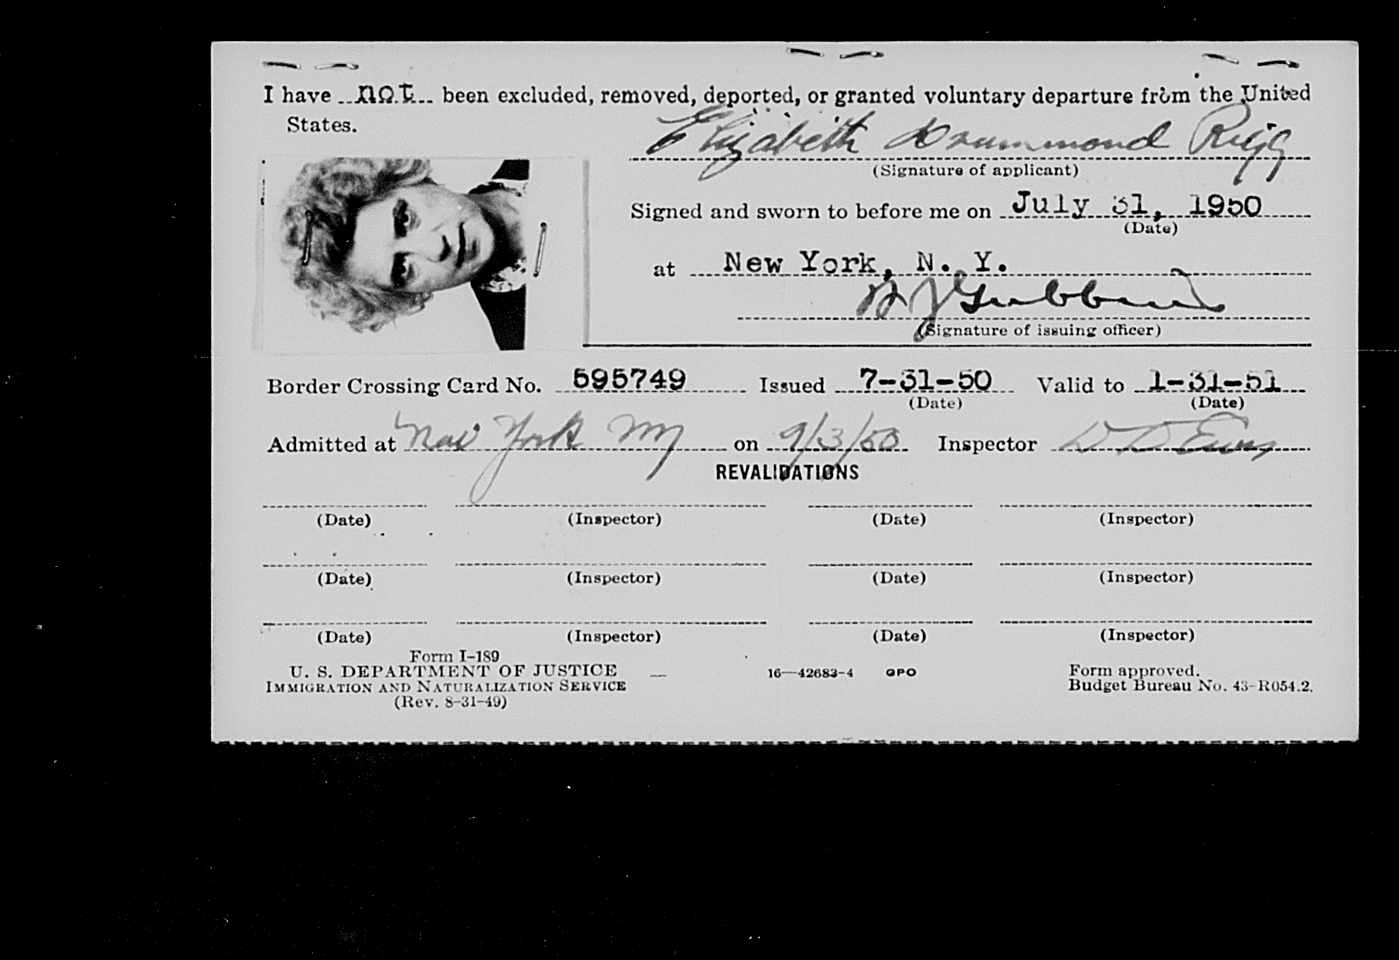 I have not been excluded, removed, deported, or granted voluntary departure from the United
States.
Elizabeth Drummond Rigg
(Signature of applicant)
Signed and sworn to before me on July 31, 1950
(Date)
at New York, N. Y.
(Signature of issuing officer)
Border Crossing Card No. 595749 Issued 7-31-50 Valid to 1-31-51
(Date) (Date)
Admitted at New York NY on 9/3/50 Inspector
REVALIDATIONS
(Date) (Inspector) (Date) (Inspector)
(Date) (Inspector) (Date) (Inspector)
(Date) (Inspector) (Date) (Inspector)
Form I-189
U. S. DEPARTMENT OF JUSTICE
IMMIGRATION AND NATURALIZATION SERVICE
(Rev. 8-31-49)
16—42683-4 GPO
Form approved.
Budget Bureau No. 43-R054.2.